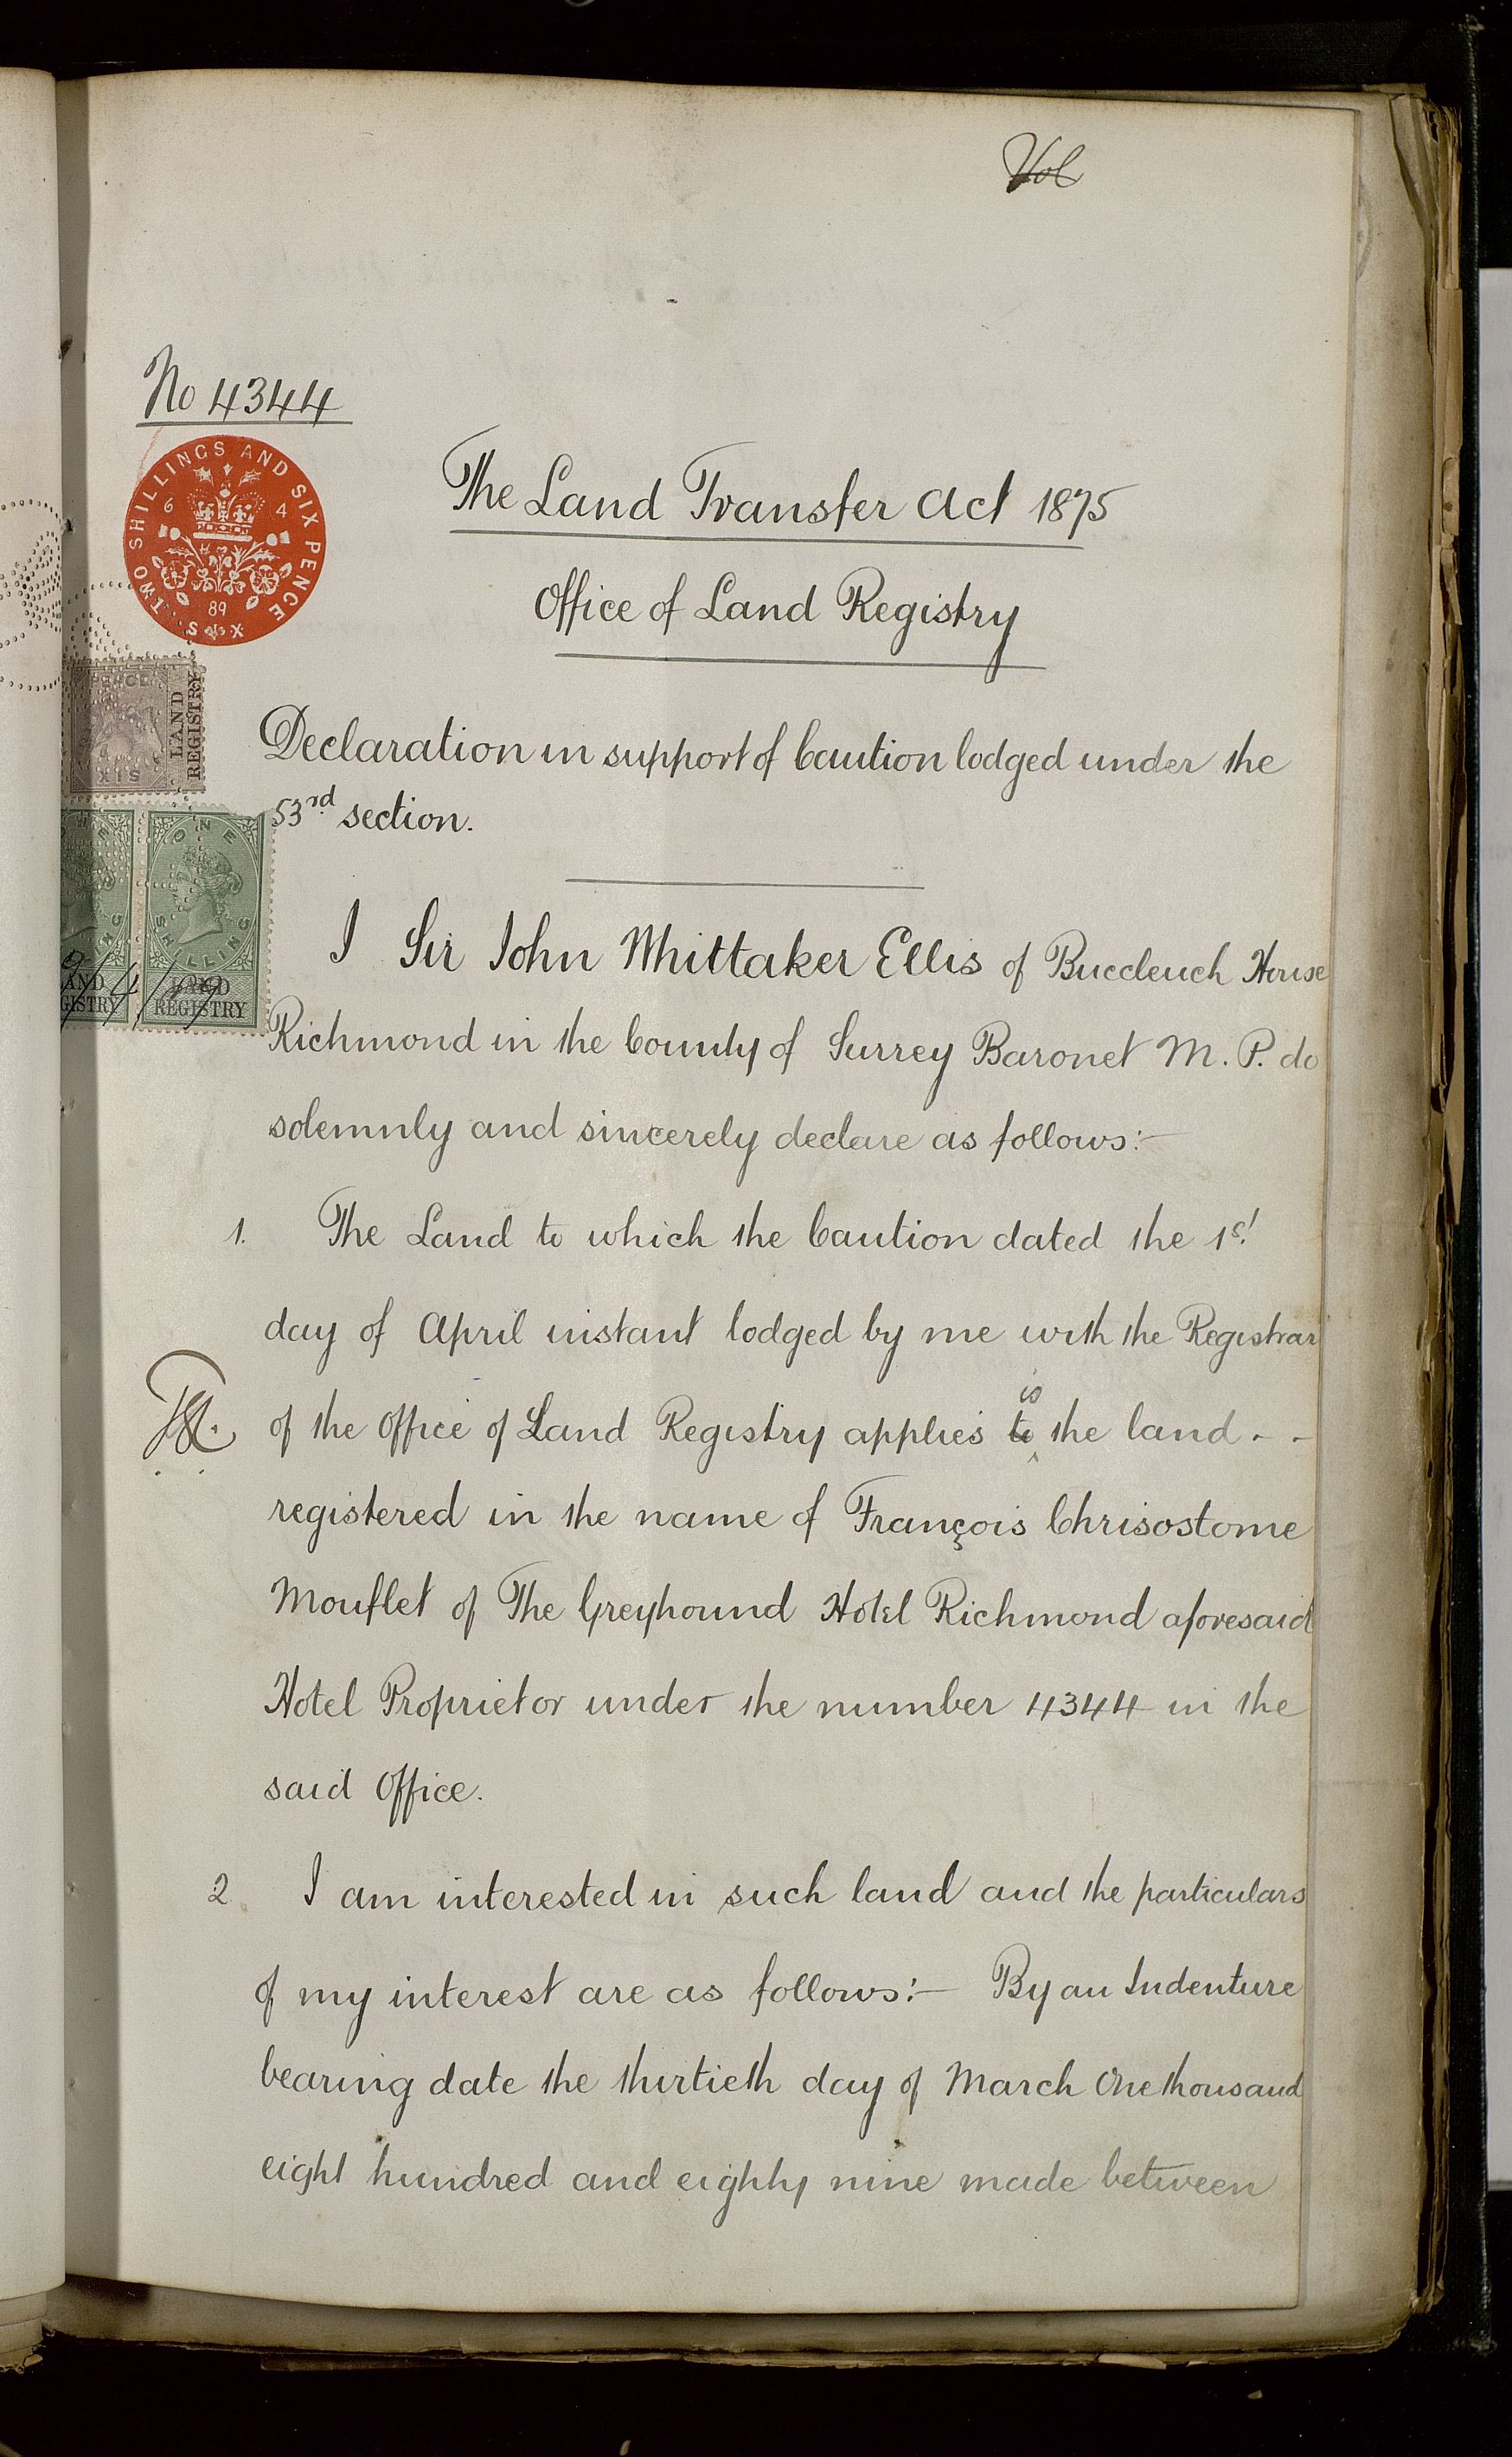 Vol
No 4344
TWO SHILLINGS AND SIX PENCE
6 4
89
The Land Transfer Act 1875
Office of Land Registry
PENCE
SIX
LAND
REGISTRY
Declaration in support of Caution lodged under the
53rd section.
ONE
SHILLING
LAND
REGISTRY
I Sir John Whittaker Ellis of Buccleuch House
Richmond in the County of Surrey Baronet M. P. do
solemnly and sincerely declare as follows:-
1. The Land to which the Caution dated the 1st
day of April instant lodged by me with the Registrar
is
of the office of Land Registry applies to the land - -
registered in the name of François Chrisostome
Mouflet of The Greyhound Hotel Richmond aforesaid
Hotel Proprietor under the number 4344 in the
said Office.
2 I am interested in such land and the particulars
of my interest are as follows:- By an Indenture
bearing date the thirtieth day of March One thousand
eight hundred and eighty nine made between